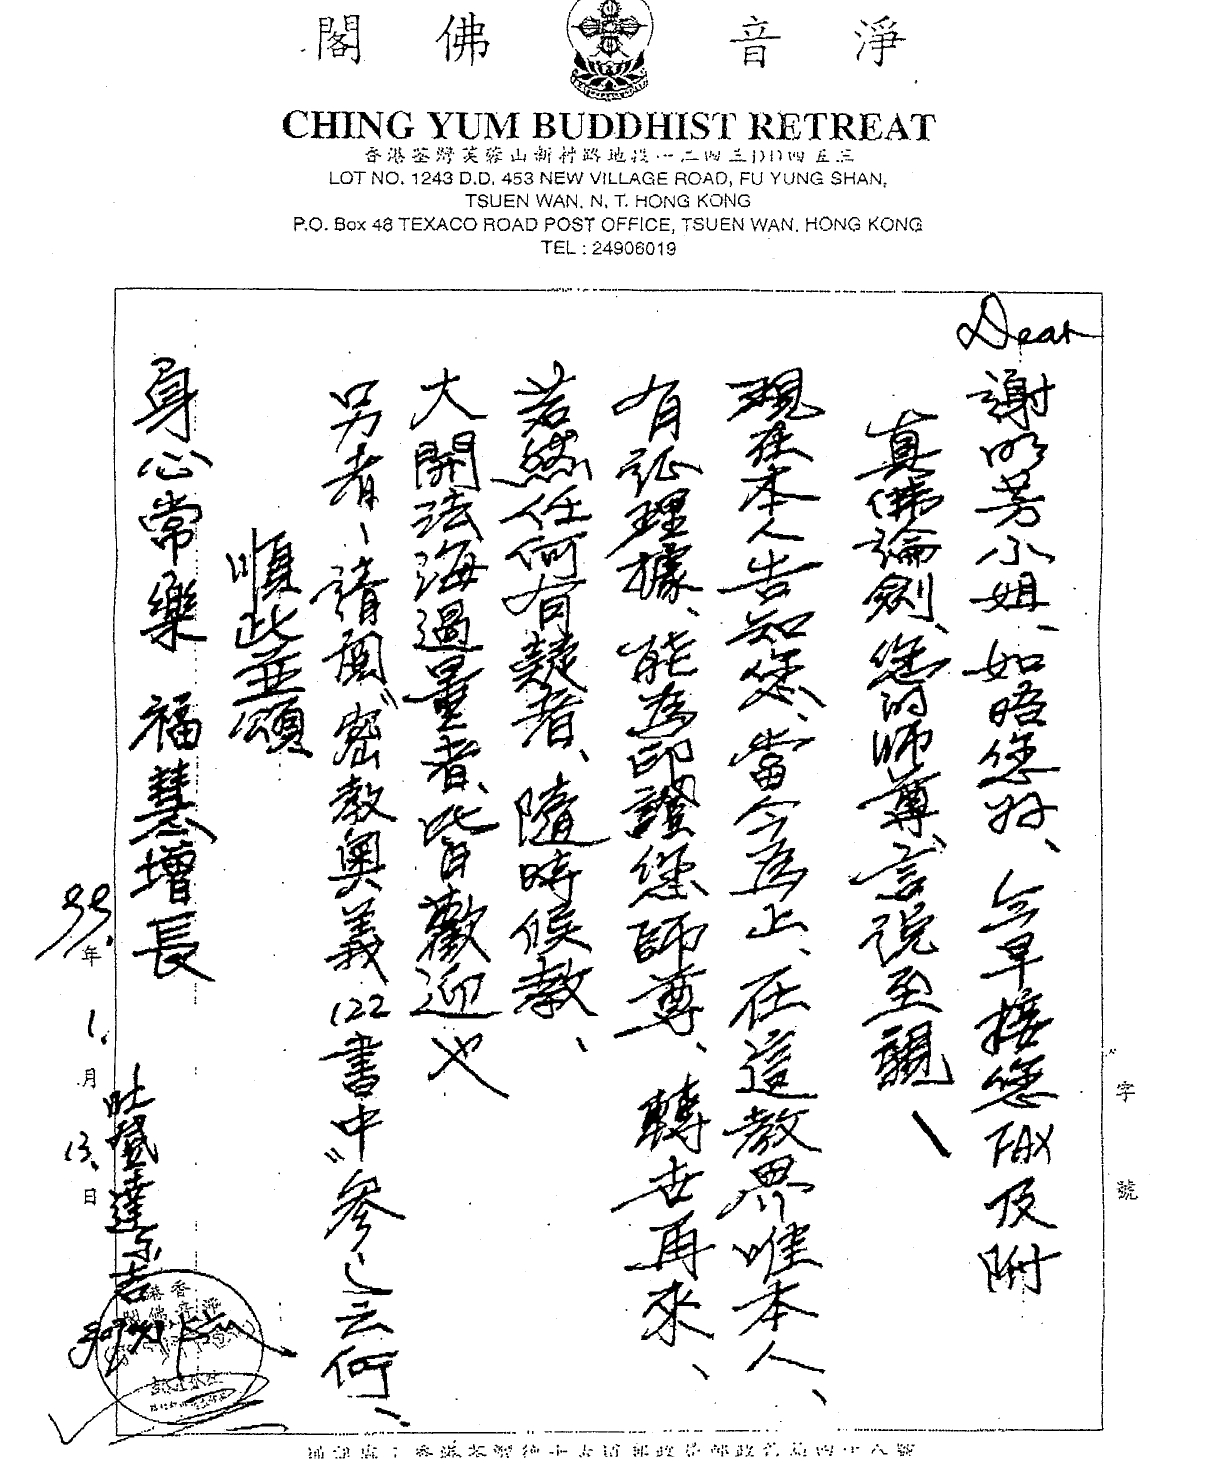 淨音佛閣
CHING YUM BUDDHIST RETREAT
香港荃灣芙蓉山新村路地段一二四三DD四五三
LOT NO. 1243 D.D. 453 NEW VILLAGE ROAD, FU YUNG SHAN,
TSUEN WAN, N. T. HONG KONG
P.O. Box 48 TEXACO ROAD POST OFFICE, TSUEN WAN, HONG KONG
TEL : 24906019
字號
Dear 謝明芳小姐、如晤您好、今早接您FAX及附
真佛論劍、您的師尊、言說至親、
現在本人告知您、當今為止、在這教界唯本人、
有証理據、能為印證您師尊、轉世再來、
若然任何有疑者、隨時候教、
大開法海過量者、皆歡迎也
另者、請閱"密教奧義122書中"參之云何、
順此並頌
身心常樂 福慧增長
吐登達尔吉
99年1月13日